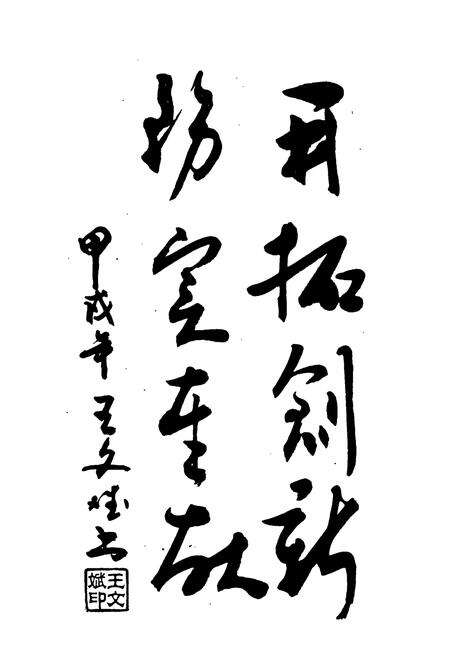 开拓創新
務实奉献
甲戌年王文斌书
王文斌印